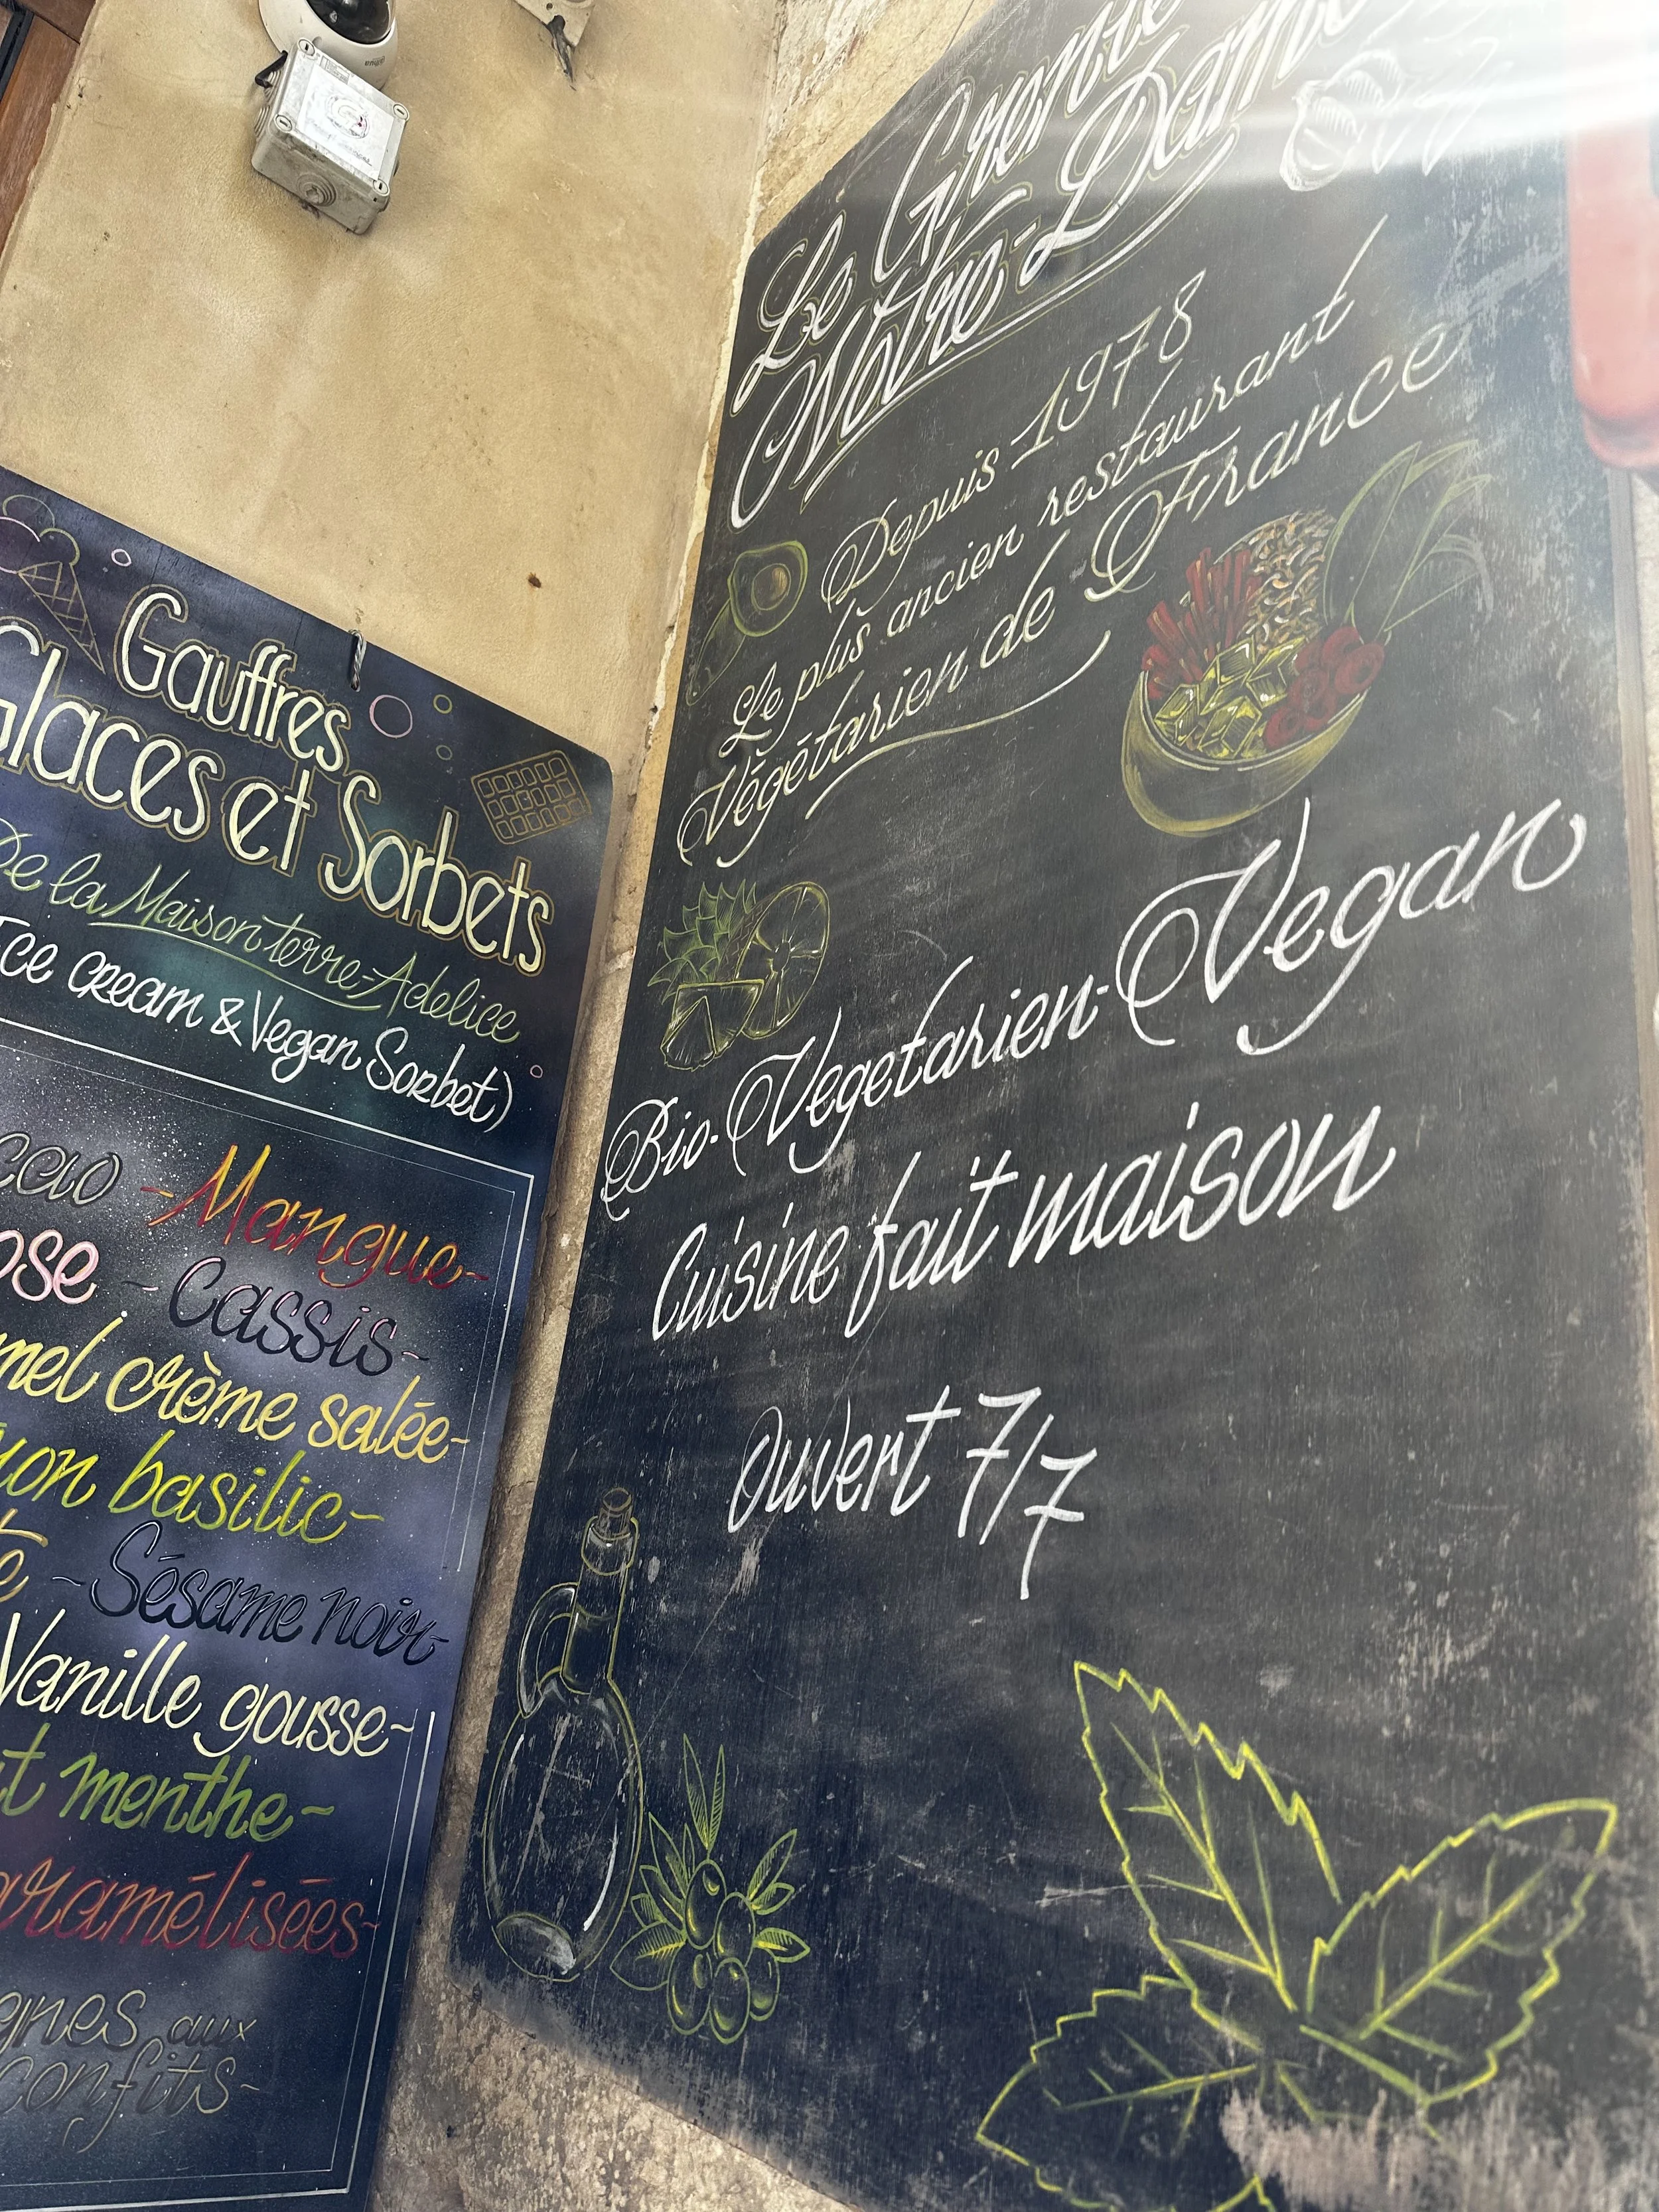 Gauffres
Glaces et Sorbets
De la Maison terre-Adelice
Ice cream & Vegan Sorbet)
- Mangue -
- Cassis -
crème salée -
basilic -
- Sésame noir -
Vanille gousse -
menthe -
aux
confits -
Le Grenier
Notre-Dame
Depuis 1978
Le plus ancien restaurant
Végétarien de France
Bio-Vegetarien-Vegan
Cuisine fait maison
Ouvert 7/7